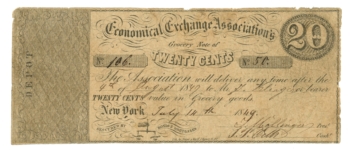 Economical Exchange Association's
Grocery Note of
20
TWENTY CENTS
No. 106. No. 51.
The Association will deliver any time after the
9th of August 1849 to the
TWENTY CENTS value in Grocery goods.
New York July 14th 1849
DEPOT